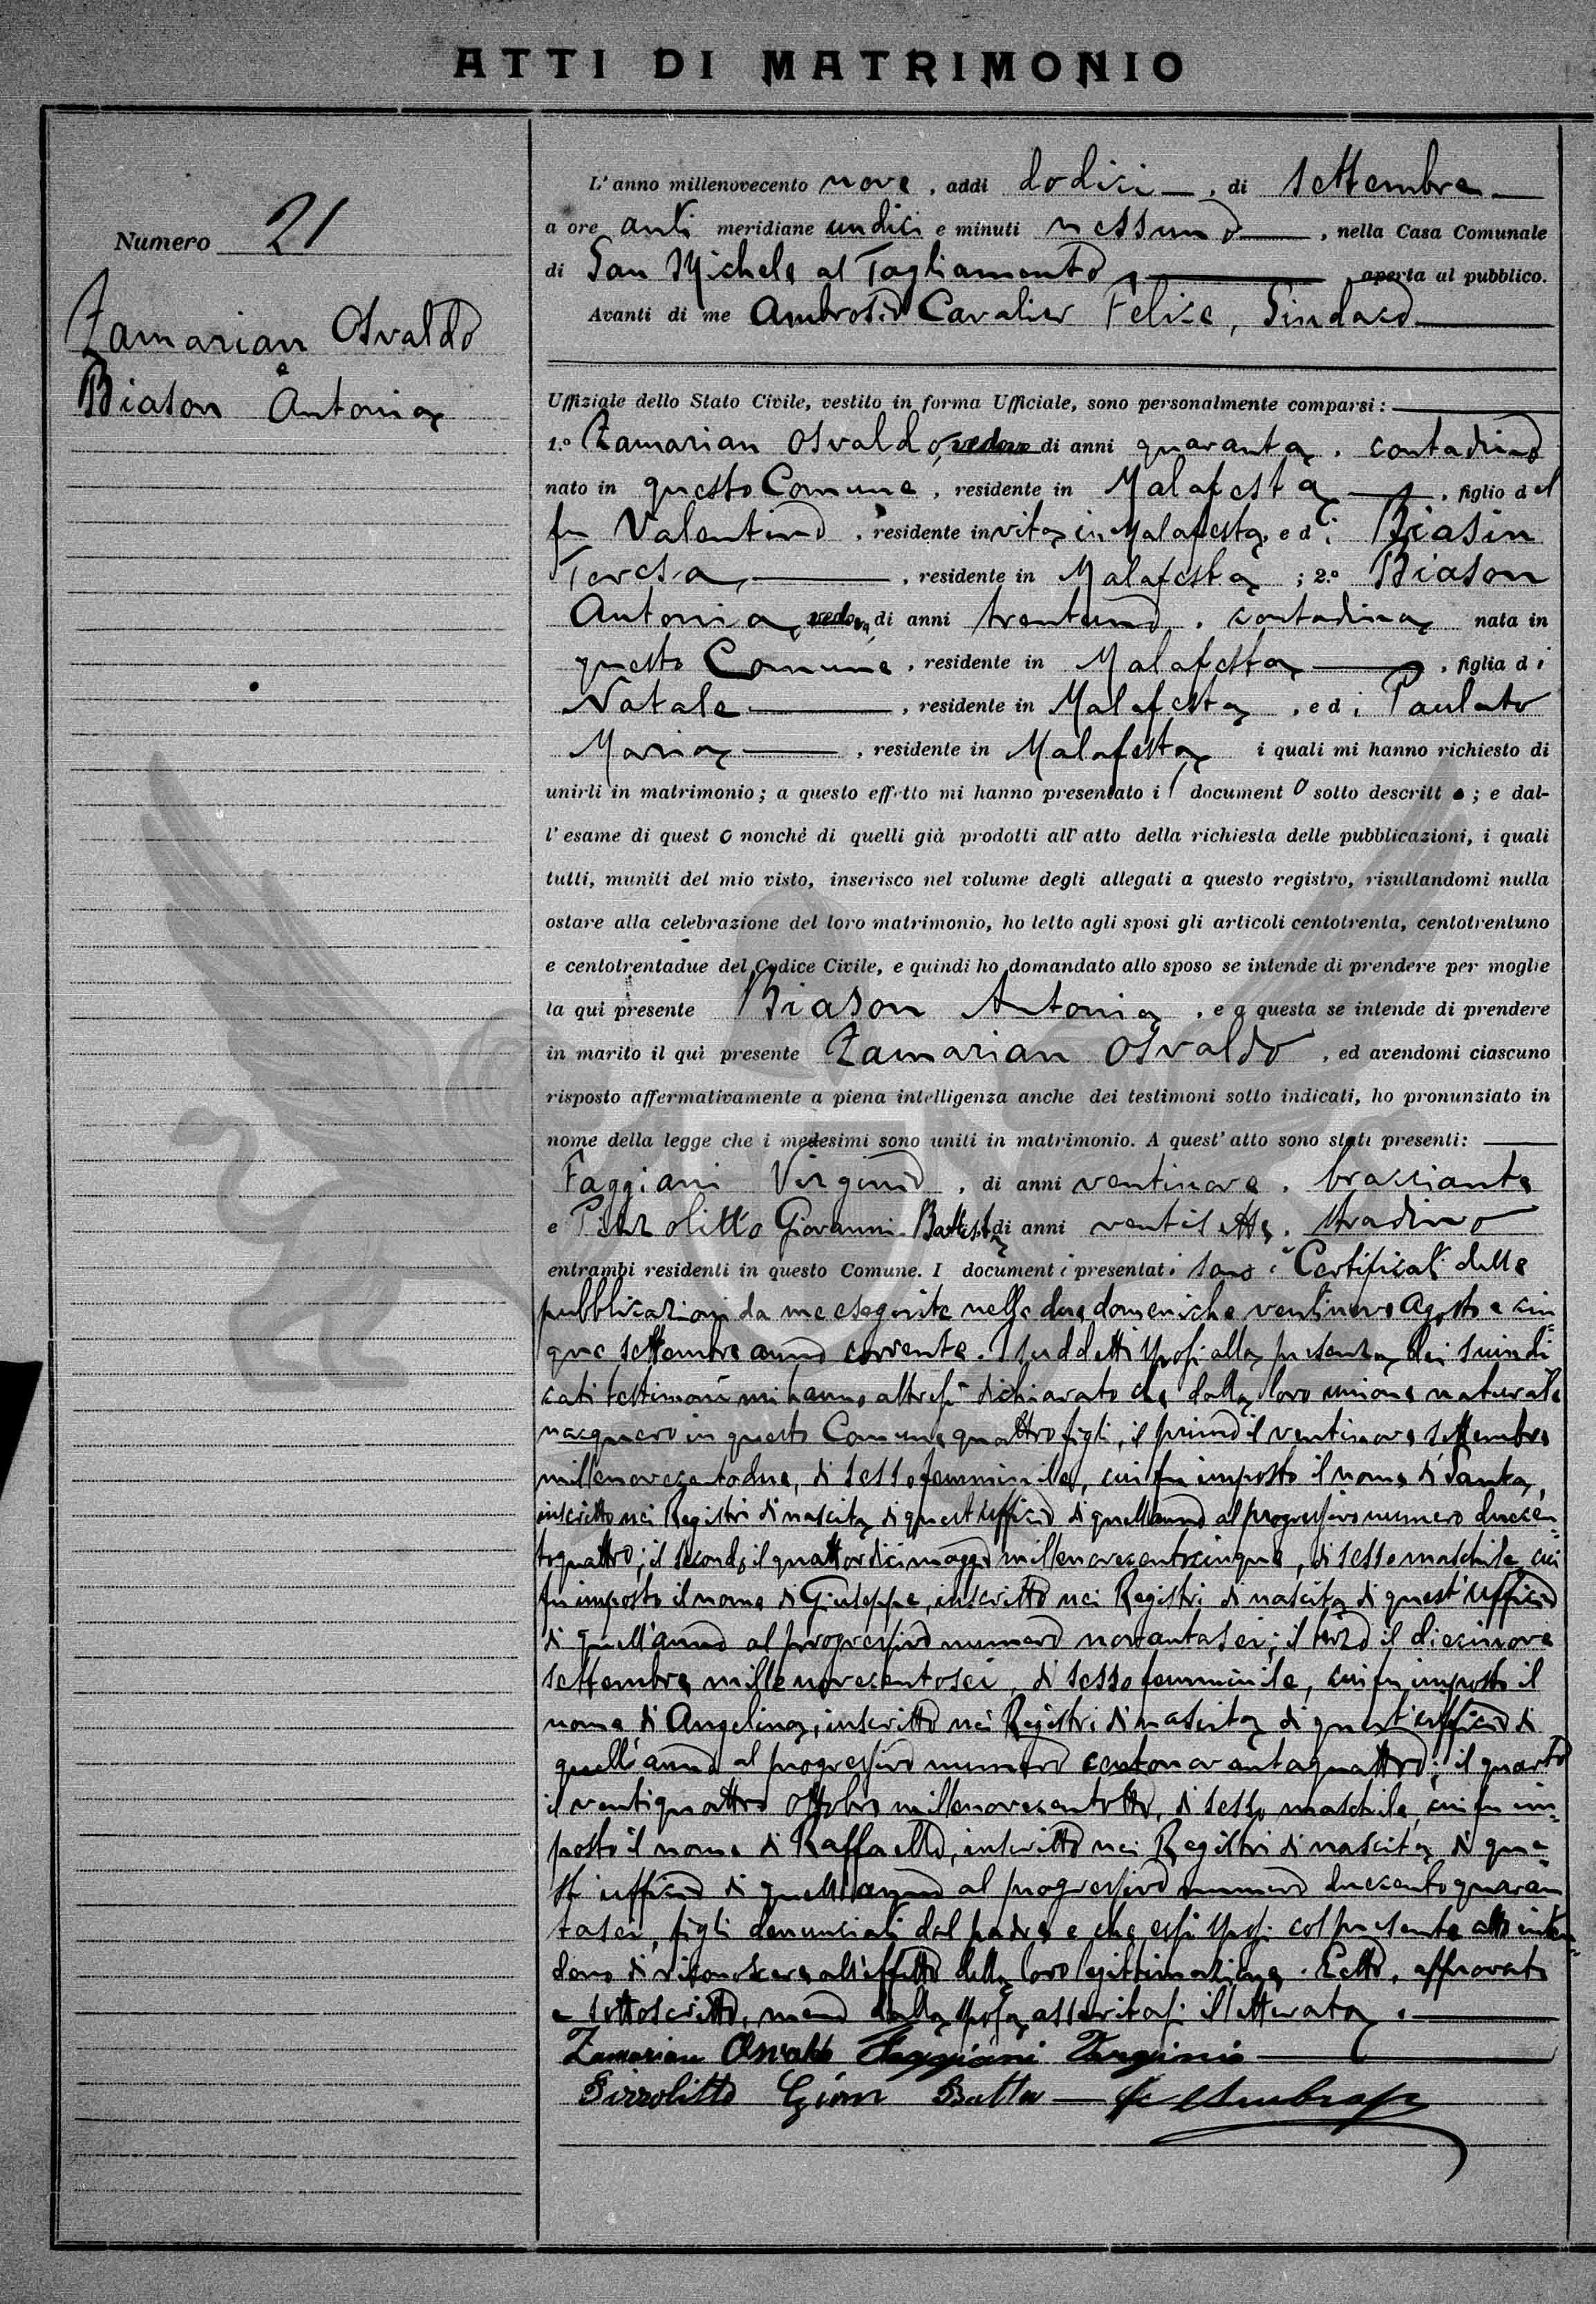 ATTI DI MATRIMONIO
Numero 21
Zamarian Osvaldo
e
Biason Antonia
L'anno millenovecento nove, addì dodici, di settembre
a ore anti meridiane undici e minuti nessuno, nella Casa Comunale
di San Michele al Tagliamento, aperta al pubblico.
Avanti di me Ambrosio Cavalier Felice, Sindaco
Uffiziale dello Stato Civile, vestito in forma Ufficiale, sono personalmente comparsi:
1.º Zamarian Osvaldo, vedovo di anni quaranta, contadino
nato in questo Comune, residente in Malafesta, figlio del
fu Valentino, residente in vita in Malafesta, e di Biasin
Teresa, residente in Malafesta; 2.º Biason
Antonia, vedova, di anni trentuno, contadina nata in
questo Comune, residente in Malafesta, figlia di
Natale, residente in Malafesta, e di Paulato
Maria, residente in Malafesta i quali mi hanno richiesto di
unirli in matrimonio; a questo effetto mi hanno presentato il documento sotto descritto; e dal-
l'esame di questo nonchè di quelli già prodotti all'atto della richiesta delle pubblicazioni, i quali
tutti, muniti del mio visto, inserisco nel volume degli allegati a questo registro, risultandomi nulla
ostare alla celebrazione del loro matrimonio, ho letto agli sposi gli articoli centotrenta, centotrentuno
e centotrentadue del Codice Civile, e quindi ho domandato allo sposo se intende di prendere per moglie
la qui presente Biason Antonia, e a questa se intende di prendere
in marito il qui presente Zamarian Osvaldo, ed avendomi ciascuno
risposto affermativamente a piena intelligenza anche dei testimoni sotto indicati, ho pronunziato in
nome della legge che i medesimi sono uniti in matrimonio. A quest'atto sono stati presenti:
Faggiani Virginio, di anni ventinove, bracciante
e Pizzolitto Giovanni Battista di anni ventisette, stradino
entrambi residenti in questo Comune. I documenti presentati sono i Certificati delle
pubblicazioni da me eseguite nelle due domeniche ventinove Agosto e cin-
que settembre anno corrente. I suddetti sposi alla presenza dei suindi
cati testimoni mi hanno altresì dichiarato che dalla loro unione naturale
nacquero in questo Comune quattro figli, il primo il ventinove settembre
millenovecentodue, di sesso femminile, cui fu imposto il nome di Santa,
inscritto nei Registri di nascita di quest'ufficio di quell'anno al progressivo numero duecen-
toquattro; il secondo il quattordici maggio millenovecentocinque, di sesso maschile, cui
fu imposto il nome di Giuseppe, inscritto nei Registri di nascita di quest'ufficio
di quell'anno al progressivo numero novantasei; il terzo il diecinove
settembre millenovecentosei, di sesso femminile, cui fu imposto il
nome di Angelina, inscritto nei Registri di nascita di quest'ufficio di
quell'anno al progressivo numero centonovantaquattro; il quarto
il ventiquattro ottobre millenovecentotto, di sesso maschile, cui fu im-
posto il nome di Raffaello, inscritto nei Registri di nascita di que-
st'ufficio di quell'anno al progressivo numero duecentoquaran
tasei, figli denunciati dal padre e che essi sposi col presente atto inten-
dono di riconoscere all'effetto della loro legittimazione. Letto, approvato
e sottoscritto, meno dalla sposa asseritasi illetterata.
Zamarian Osvaldo Faggiani Verginio
Pizzolitto Giovn Batta F Ambrosio